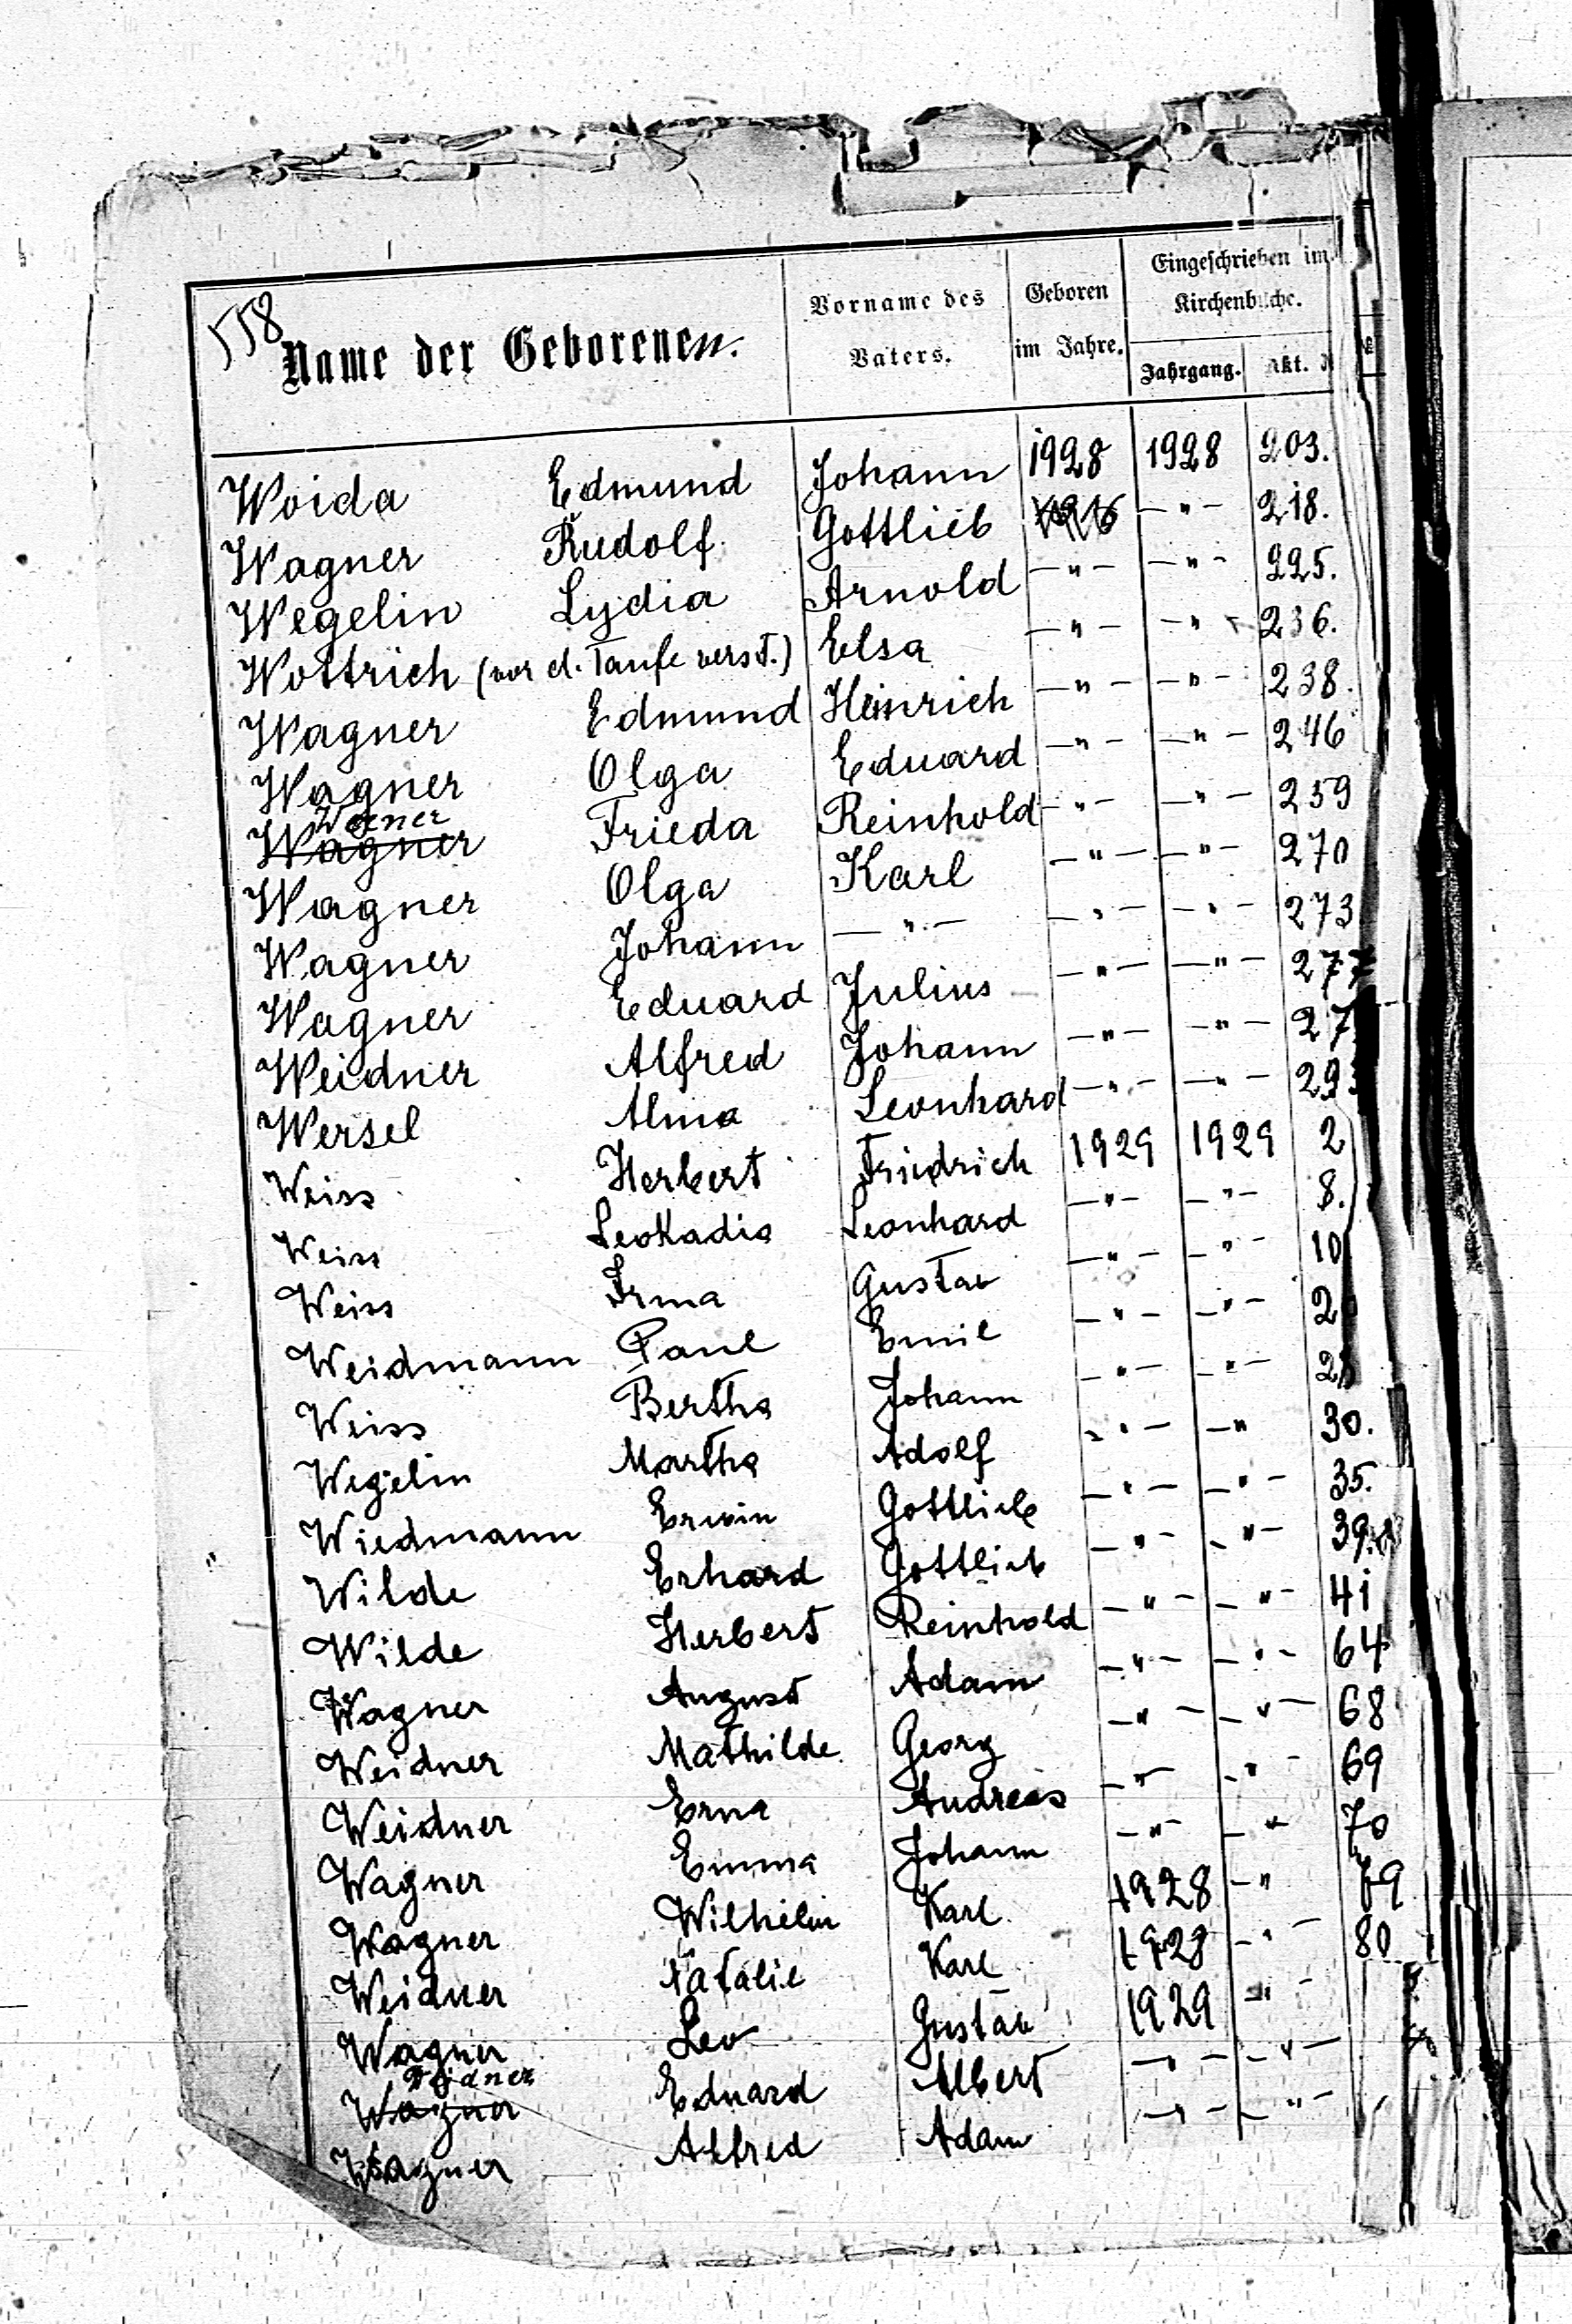 558
Name der Geborenen. Vorname des Vaters. Geboren im Jahre. Eingeschrieben im Kirchenbuche.
Jahrgang. Akt.
Woida Edmund Johann 1928 1928 203.
Wagner Rudolf Gottlieb -"- 218.
Wegelin Lydia Arnold -"- -"- 225.
Wottrich (vor d. Taufe verst.) Elsa -"- -"- 236.
Wagner Edmund Heinrich -"- -"- 238.
Wagner Olga Eduard -"- -"- 246
Wegner
Wagner Frieda Reinhold -"- -"- 259
Wagner Olga Karl -"- -"- 270
Wagner Johann -"- -"- -"- 273
Wagner Eduard Julius -"- -"- 277
Weidner Alfred Johann -"- -"- 27
Wersel Alma Leonhard -"- -"- 29
Weiss Herbert Friedrich 1929 1929 2
Weiss Leokadia Leonhard -"- -"- 8.
Weiss Irma Gustav -"- -"- 10
Weidmann Paul Emil -"- -"- 2
Weiss Bertha Johann -"- -"- 2
Wegelin Martha Adolf -"- -"- 30.
Wiedmann Erwin Gottlieb -"- -"- 35.
Wilde Erhard Gottlieb -"- -"- 39.
Wilde Herbert Reinhold -"- -"- 41
Wagner August Adam -"- -"- 64
Weidner Mathilde Georg -"- -"- 68
Weidner Erna Andreas -"- -"- 69
Wagner Emma Johann -"- -"- 70
Wagner Wilhelm Karl 1928 -"- 79
Weidner Natalie Karl 1928 -"- 80
Wagner Leo Gustav 1929 -"-
Weidner
Wagner Eduard Albert -"- -"-
Wagner Alfred Adam -"- -"-